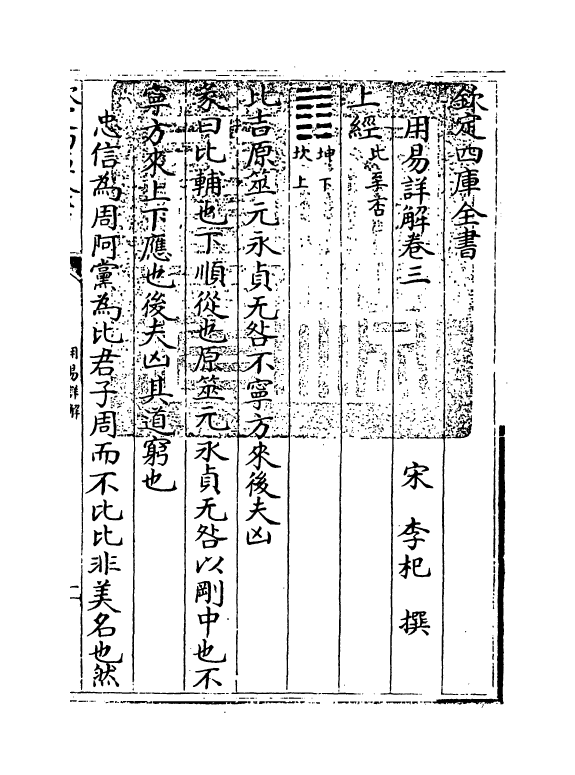 欽定四庫全書
用易詳解卷三
宋 李杞 撰
上經
坤下
坎上
比吉原筮元永貞无咎不寧方來後夫凶
彖曰比輔也下順從也原筮元永貞无咎以剛中也不
寧方來上下應也後夫凶其道窮也
忠信為周阿黨為比君子周而不比比非美名也然
用易詳解